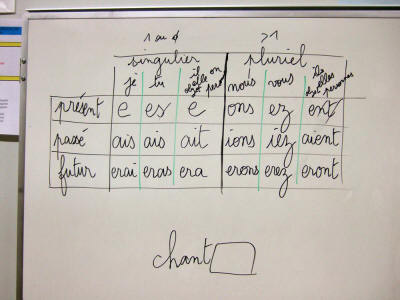 1 ou 0 >1
singulier pluriel
je tu il elle on objet pers nous vous ils elles objet personnes
présent e es e ons ez ent
passé ais ais ait ions iez aient
futur erai eras era erons erez eront
chant